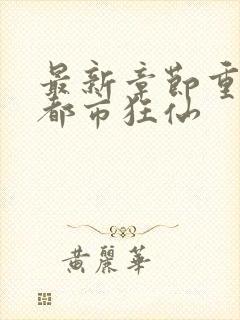 最新章節重
都市狂仙
黄麗華